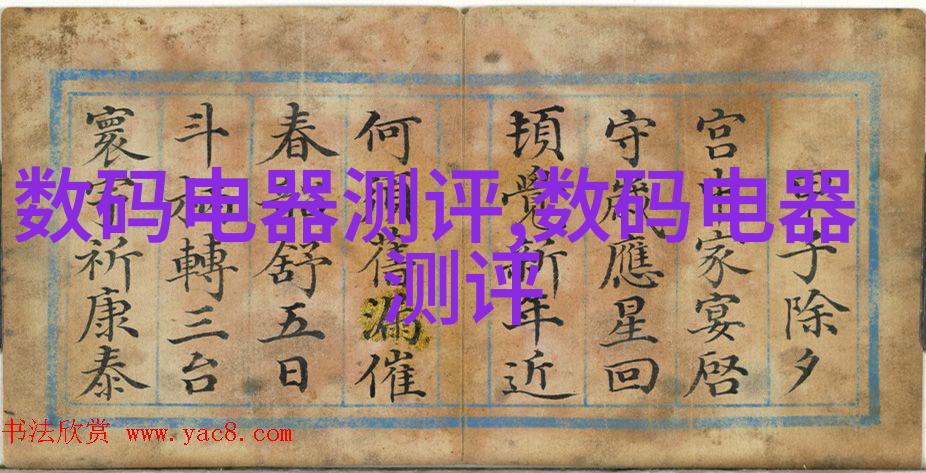 数码电器测评,数码电器
测评
甲子除夕
宫中家宴啓
守歲應星回
頓覺新年近
何須待漏催
春舒五日
斗轉三台
寰宇祈康泰
书法欣赏 www.yac8.com